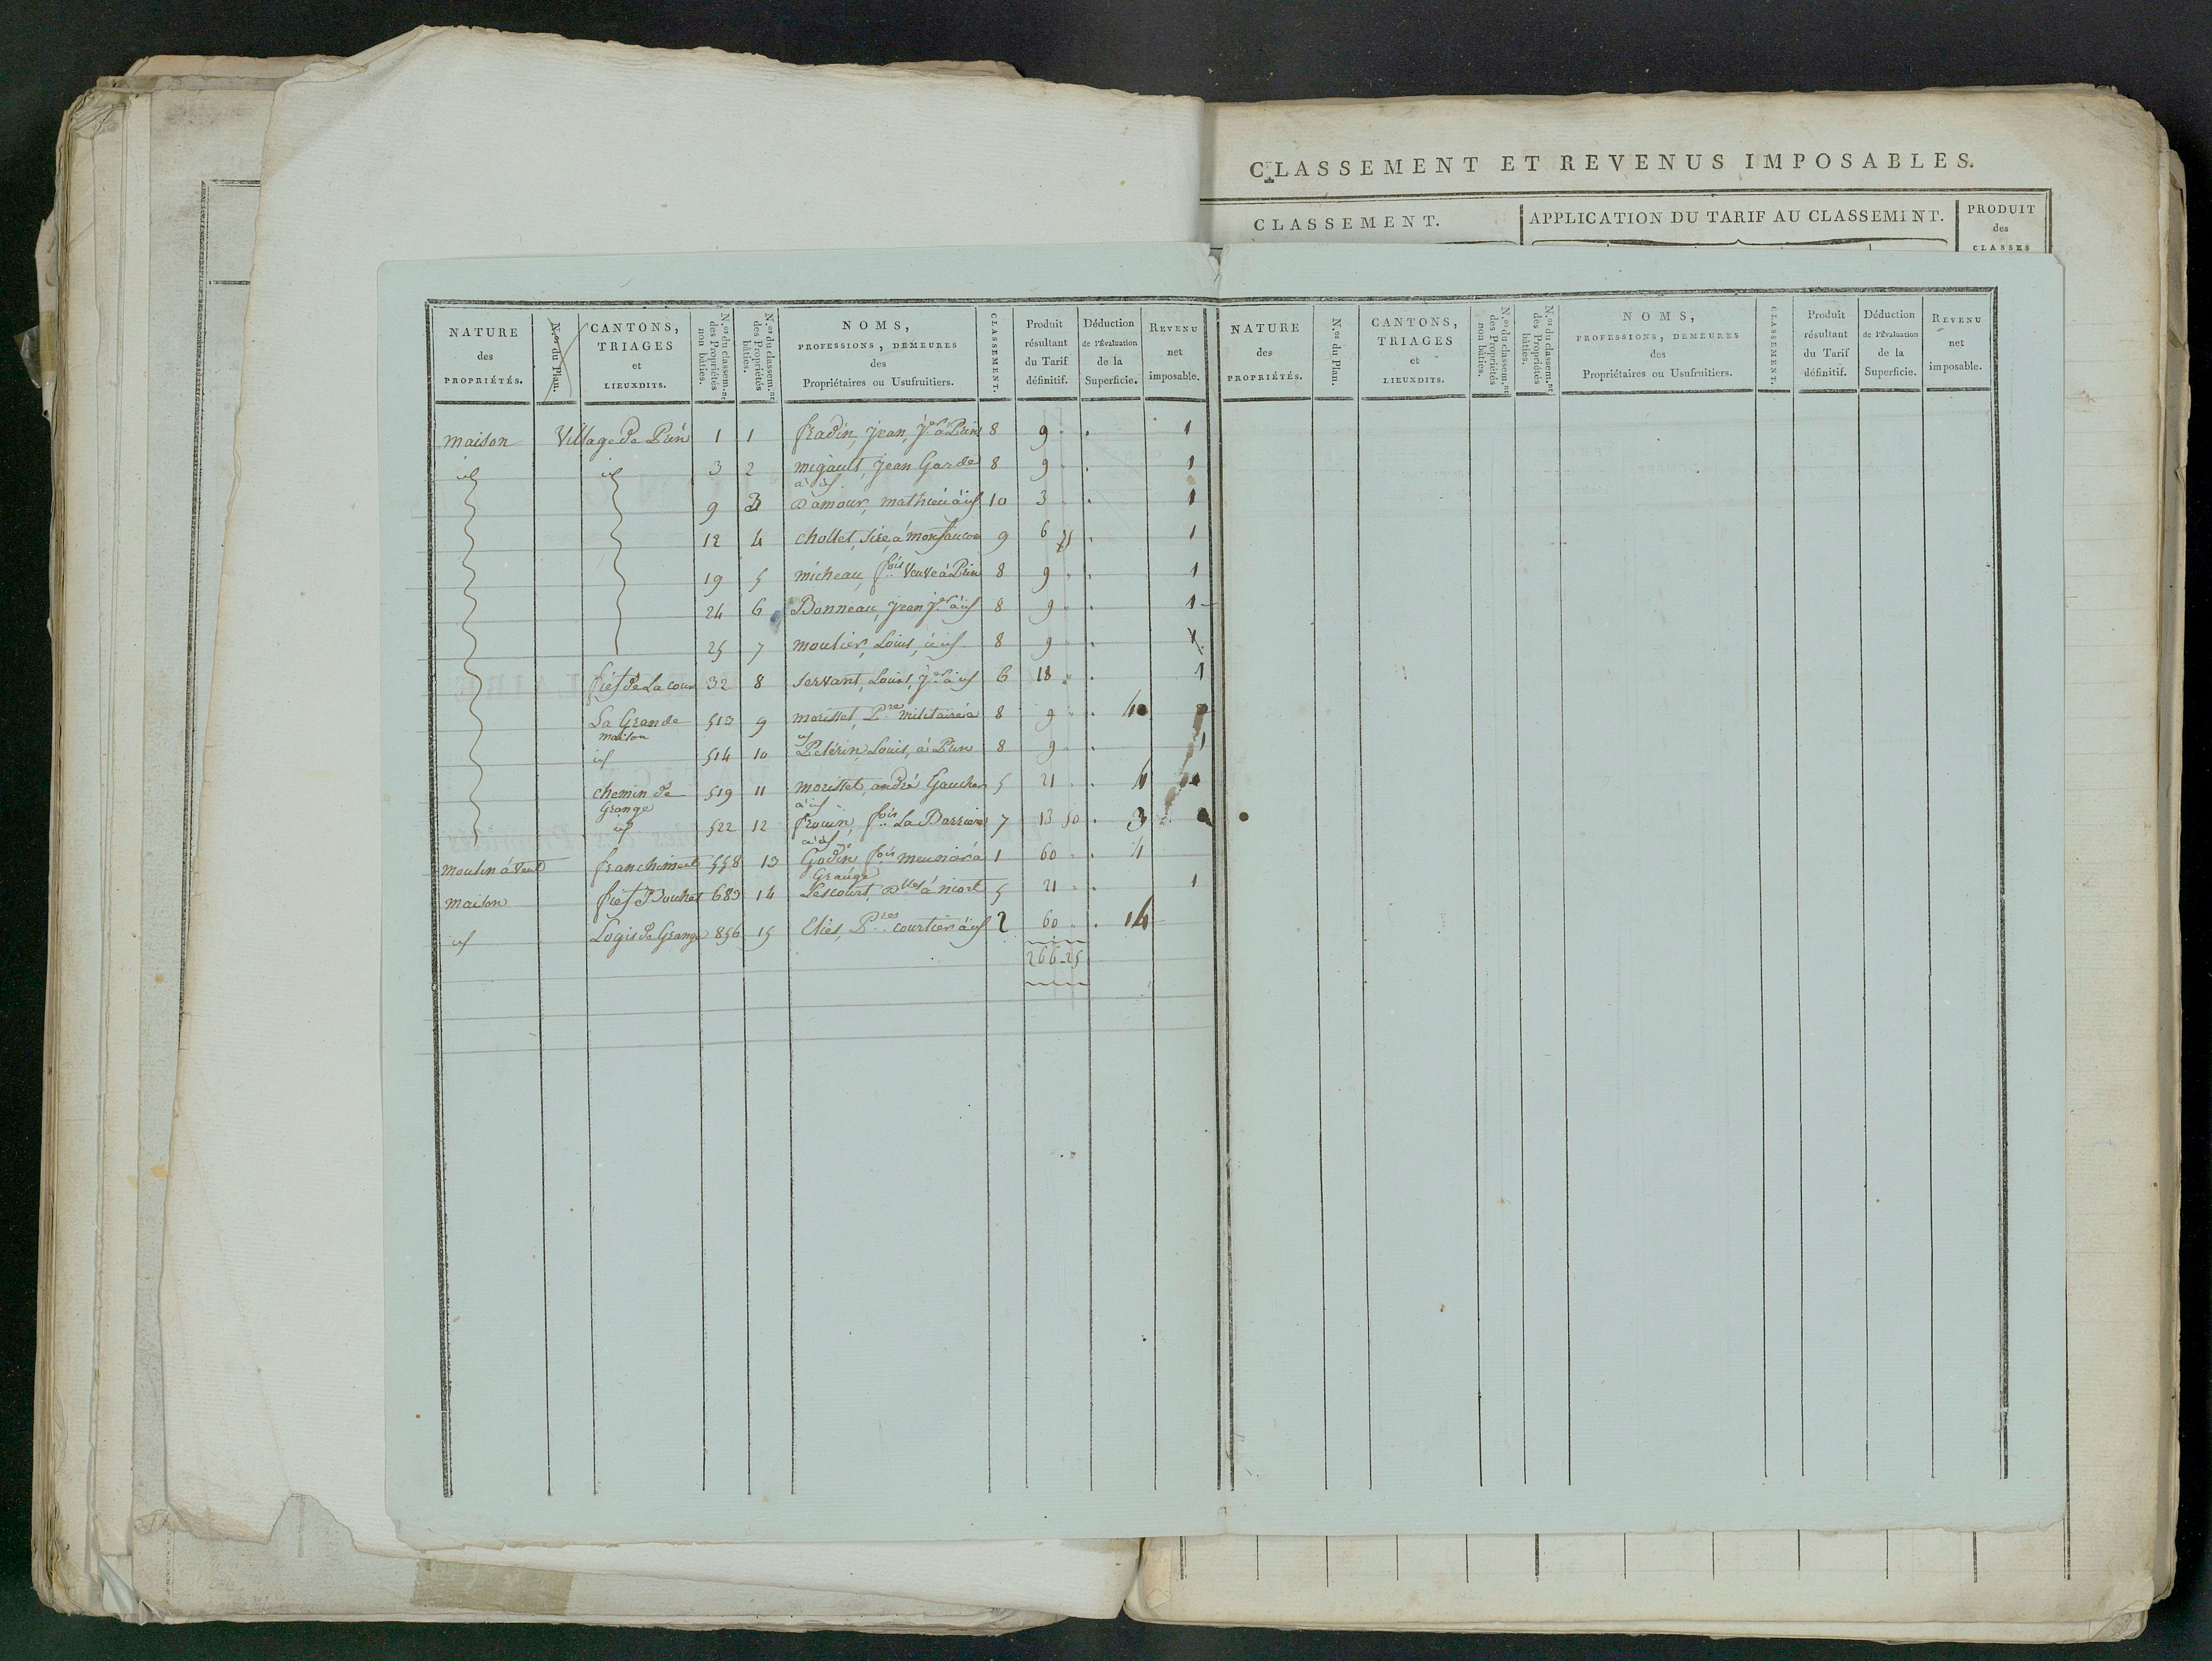 CLASSEMENT ET REVENUS IMPOSABLES.
CLASSEMENT. APPLICATION DU TARIF AU CLASSEMENT. PRODUIT
des
CLASSES
NATURE des PROPRIÉTÉS. N.os du Plan. CANTONS, TRIAGES et LIEUXDITS. N.os du classem.nt des Propriétés non bâties. N.os du classem.nt des Propriétés bâties. NOMS, PROFESSIONS, DEMEURES des Propriétaires ou Usufruitiers. CLASSEMENT. Produit résultant du Tarif définitif. Déduction de l'Évaluation de la Superficie. REVENU net imposable.
NATURE des PROPRIÉTÉS. N.os du Plan. CANTONS, TRIAGES et LIEUXDITS. N.os du classem.nt des Propriétés non bâties. N.os du classem.nt des Propriétés bâties. NOMS, PROFESSIONS, DEMEURES des Propriétaires ou Usufruitiers. CLASSEMENT. Produit résultant du Tarif définitif. Déduction de l'Évaluation de la Superficie. REVENU net imposable.
maison Village de Prin 1 1 fradin, jean, j.er à Prin 8 9 1
id id 3 2 migault, jean Garde 8 9 1
à id
9 3 Damour, mathieu à id 10 3 1
12 4 chollet, à monfaucon 9 6 75 1
19 5 micheau, fois Veuve à Prin 8 9 1
24 6 Bonneau, jean j.er à id 8 9 1
25 7 moulier, Louis, à id 8 9 1
fief de La cour 32 8 servant, Louis, j.er à id 6 18 1
La Grande 513 9 morisset, P.re militaire à 8 9
maison id
id 514 10 Pelérin, Louis, à Prin 8 9 1
chemin de 519 11 morisset, andré Gaucher 5 21
Grange à id
id 522 12 frouin, fois La Barriere 7 13 50 3
à id
moulin à Vent franchiment 558 13 Godin fois meunier à 1 60
Grange
maison fief Bouchet 683 14 Lescourt, Dlles à niort 5 21 1
id Logis de Grange 856 15 Elies, P.res courtier à id 2 60 14
266-25